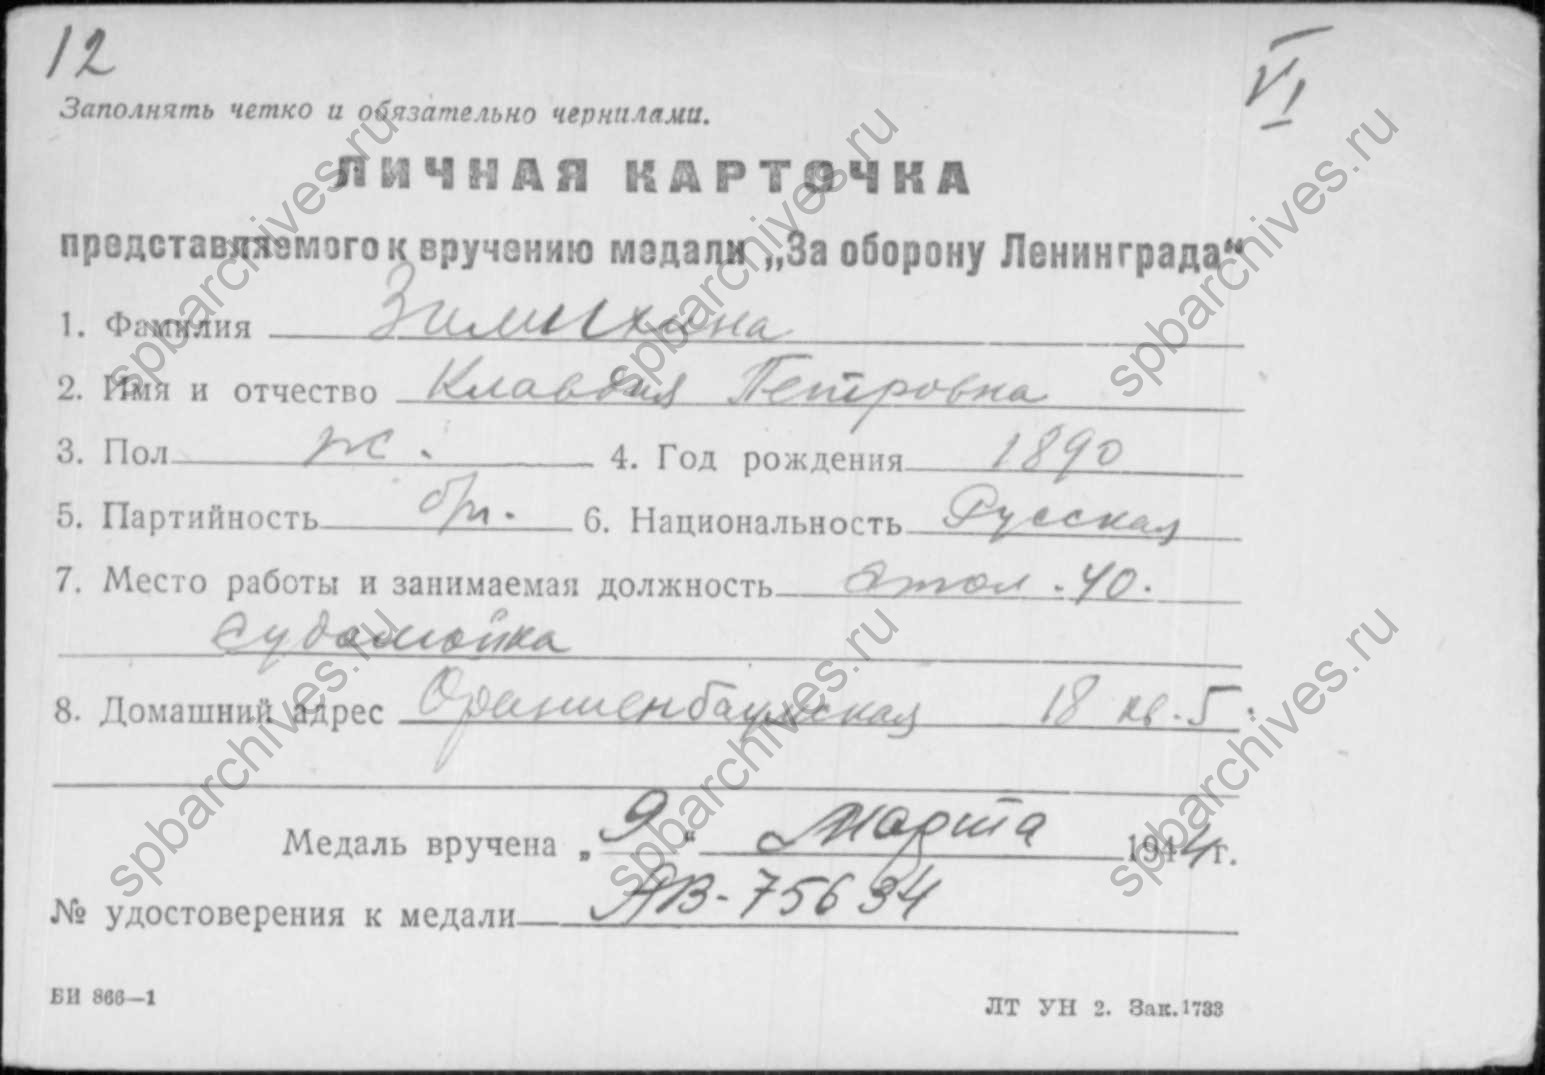 12
VI
Заполнять четко и обязательно чернилами.
ЛИЧНАЯ КАРТОЧКА
представляемого к вручению медали „За оборону Ленинграда“
1. Фамилия Зимихина
2. Имя и отчество Клавдия Петровна
3. Пол ж. 4. Год рождения 1890
5. Партийность б/п. 6. Национальность Русская
7. Место работы и занимаемая должность стол. 40.
судомойка
8. Домашний адрес Ораниенбаумская 18 кв. 5.
Медаль вручена „9“ Марта 1944 г.
№ удостоверения к медали АВ-75634
БИ 866—1
ЛТ УН 2. Зак. 1733
spbarchives.ru
spbarchives.ru
spbarchives.ru
spbarchives.ru
spbarchives.ru
spbarchives.ru